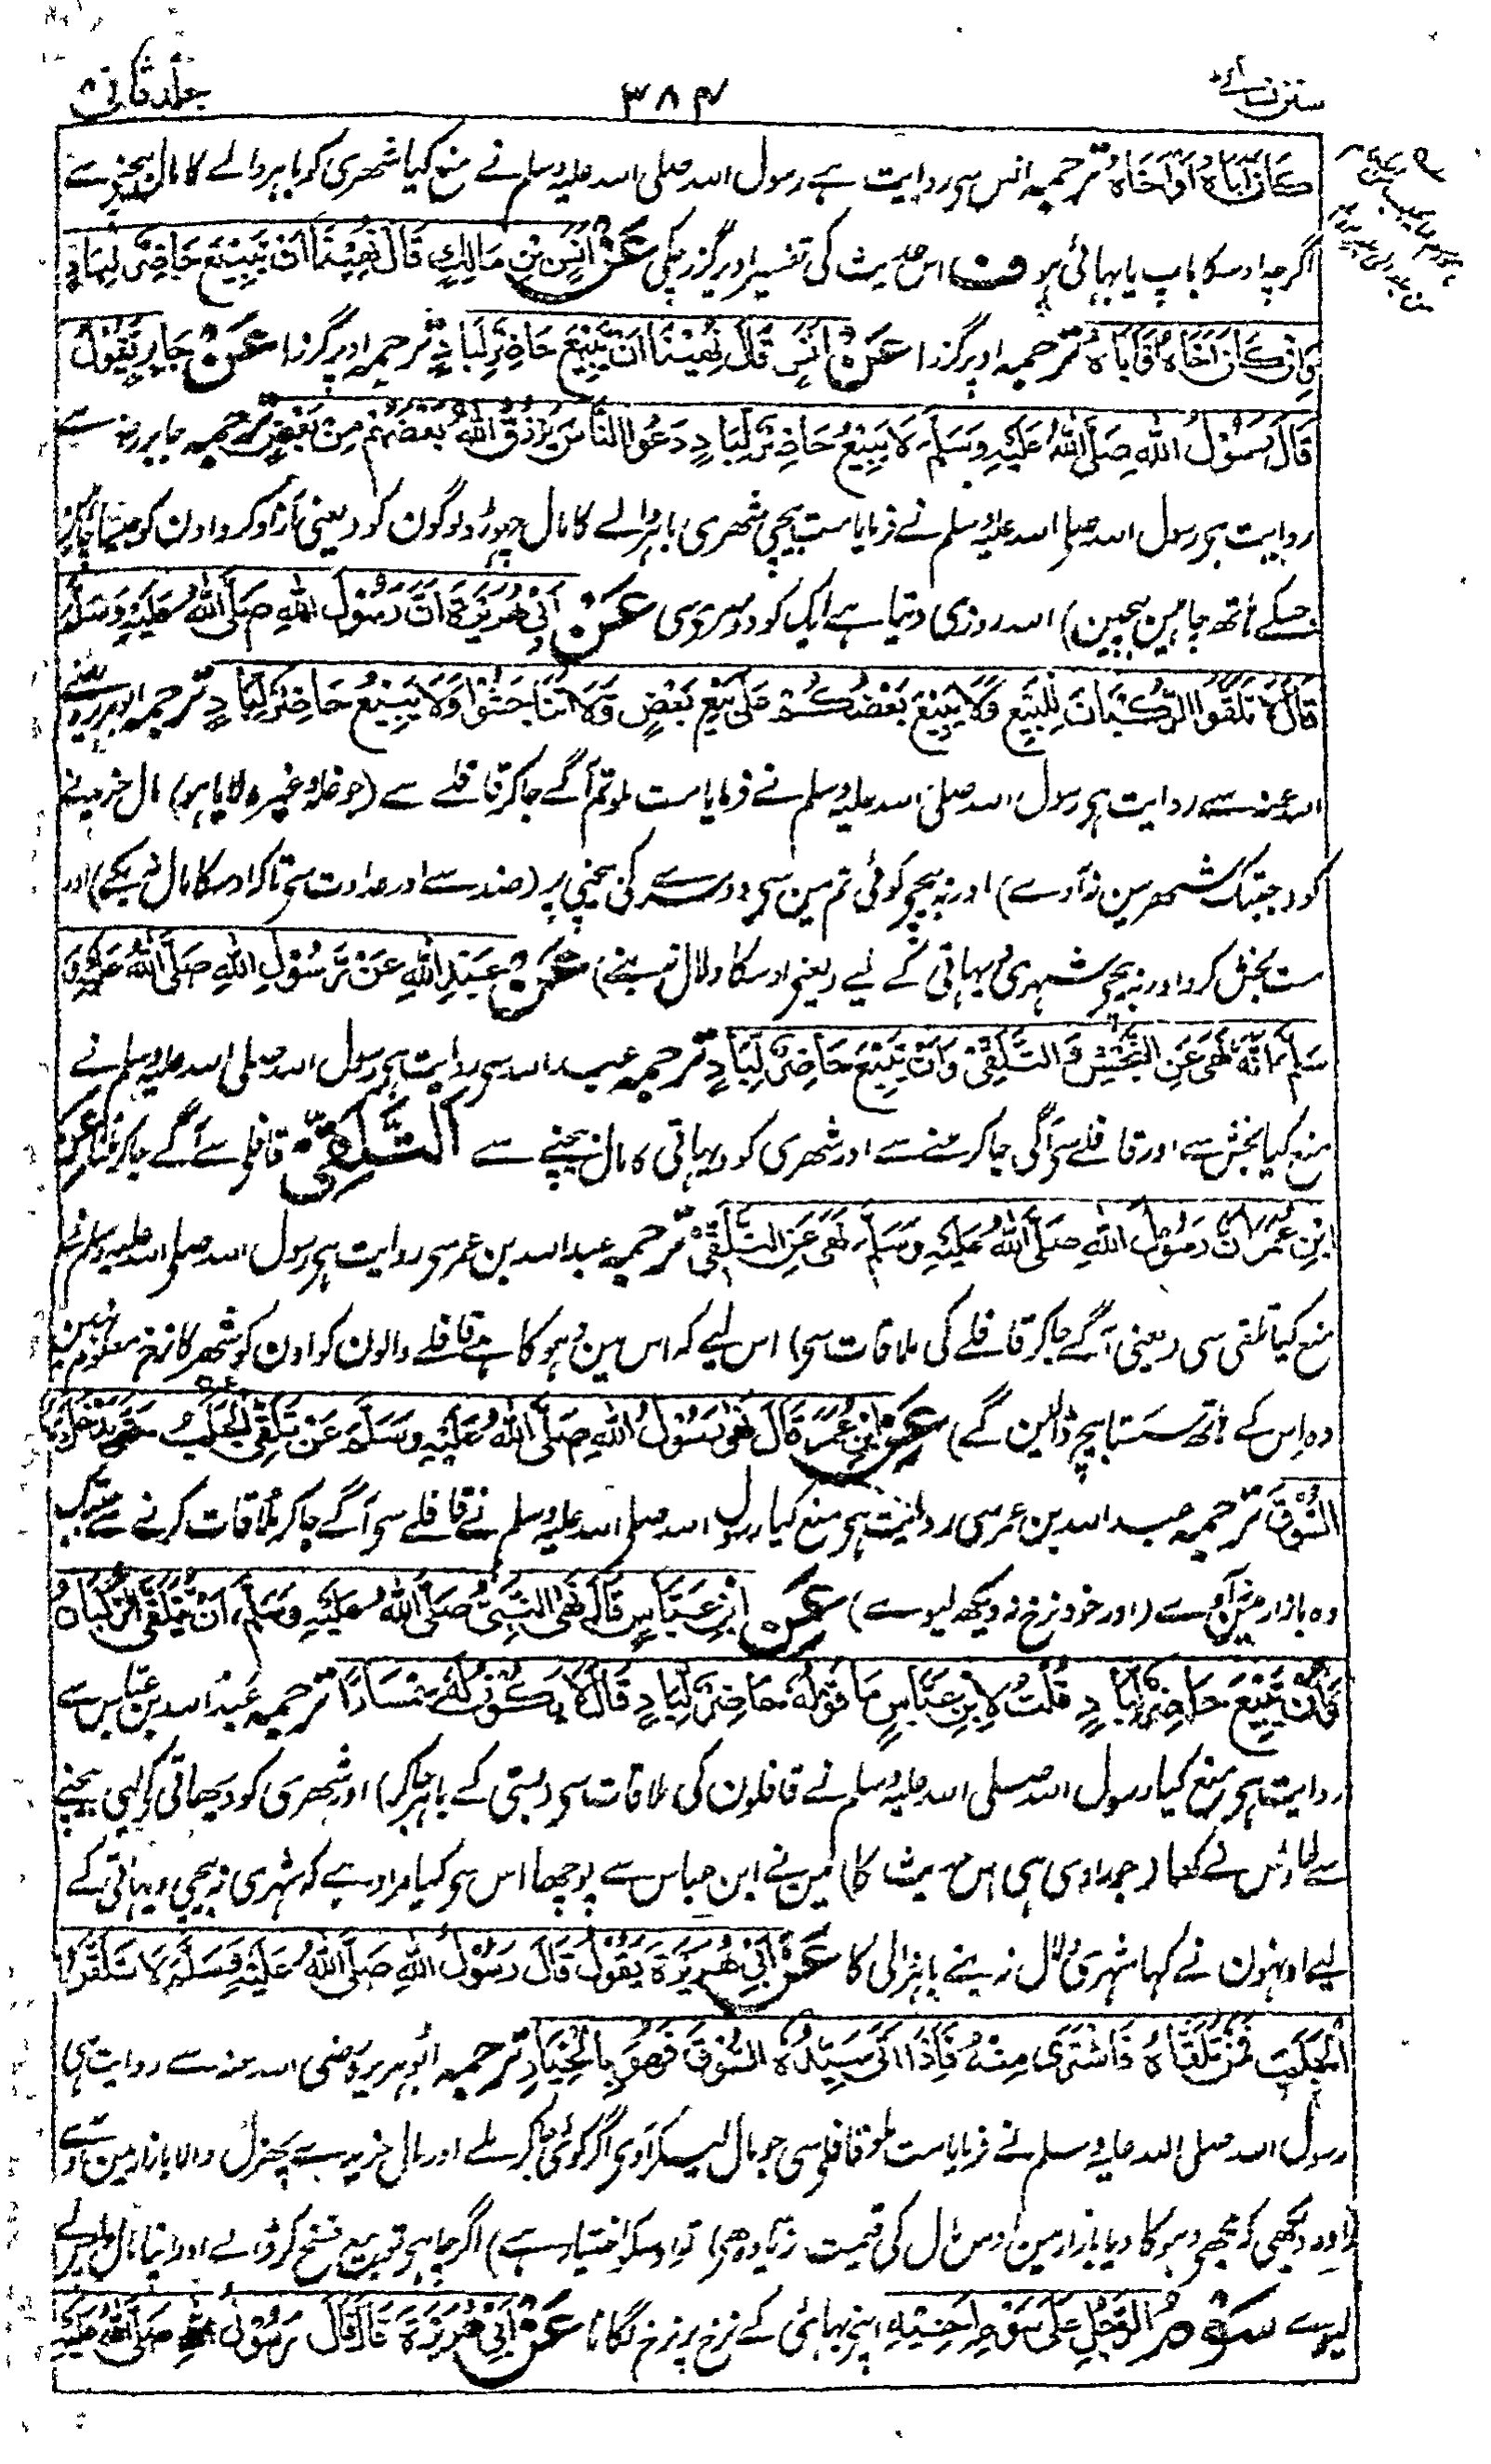 سنن نسائی
۳۸۴
جلد ثانی
كَانَ اَبَاهُ اَوْ اَخَاهُ ترجمہ انس سی روایت ہے رسول اللہ صلی اللہ علیہ وسلم نے منع کیا شہری کو باہر والے کا مال بیچنے سے
اگرچہ اوسکا باپ یا بہائی ہو ف اس حدیث کی تفسیر اوپر گزر چکی عَنْ اَنَسِ بْنِ مَالِكٍ قَالَ نُهِيْنَا اَنْ يَبِيْعَ حَاضِرٌ لِبَادٍ
وَاِنْ كَانَ اَخَاهُ اَوْ اَبَاهُ ترجمہ اوپر گزرا عَنْ اَنَسٍ قَالَ نُهِيْنَا اَنْ يَبِيْعَ حَاضِرٌ لِبَادٍ ترجمہ اوپر گزرا عَنْ جَابِرٍ يَقُوْلُ
قَالَ رَسُوْلُ اللهِ صَلَّى اللهُ عَلَيْهِ وَسَلَّمَ لَا يَبِيْعُ حَاضِرٌ لِبَادٍ دَعُوا النَّاسَ يَرْزُقُ اللهُ بَعْضَهُمْ مِنْ بَعْضٍ ترجمہ جابر رضہ سے
روایت ہی رسول اللہ صلی اللہ علیہ وسلم نے فرمایا مت بیچی شہری باہر والے کا مال چہوڑ دو لوگون کو (یعنی آزاد کرو اون کو
جسکے ہاتھ چاہین بیچین) اللہ روزی دیتا ہے ایک کو دوسرے سی عَنْ اَبِيْ هُرَيْرَةَ اَنَّ رَسُوْلَ اللهِ صَلَّى اللهُ عَلَيْهِ وَسَلَّمَ
قَالَ لَا تَلَقَّوُا الرُّكْبَانَ لِلْبَيْعِ وَلَا يَبِيْعُ بَعْضُكُمْ عَلٰى بَيْعِ بَعْضٍ وَلَا تَنَاجَشُوْا وَلَا يَبِيْعُ حَاضِرٌ لِبَادٍ ترجمہ ابو ہریرہ رضی
اللہ عنہ سے روایت ہی رسول اللہ صلی اللہ علیہ وسلم نے فرمایا مت ملو تم آگے جا کر قافلے سے (جو غلہ وغیرہ لایا ہو) مال خریدنے
کو (جبتک شہر مین نہ آوے) اور نہ بیچی کوئی تم مین سی دوسرے کی بیچنی پر (ضد سے اور عداوت سی تاکہ اوسکا مال نہ بکے) اور
مت نجش کرو اور نہ بیچی شہری دیہاتی کے لیے (یعنی اوسکا دلال نہ بنے) عَنْ عَبْدِ اللهِ عَنْ رَسُوْلِ اللهِ صَلَّى اللهُ عَلَيْهِ وَ
سَلَّمَ اَنَّهُ نَهٰى عَنِ النَّجْشِ وَالتَّلَقِّيْ وَاَنْ يَبِيْعَ حَاضِرٌ لِبَادٍ ترجمہ عبد اللہ سی روایت ہی رسول اللہ صلی اللہ علیہ وسلم نے
منع کیا نجش سے اور قافلے سی آگی جا کر ملنے سے اور شہری کو دیہاتی کا مال بیچنے سے اَلتَّلَقِّيْ قافلے سے آگے جا کر ملنا عَنِ
ابْنِ عُمَرَ اَنَّ رَسُوْلَ اللهِ صَلَّى اللهُ عَلَيْهِ وَسَلَّمَ نَهٰى عَنِ التَّلَقِّيْ ترجمہ عبد اللہ بن عمر سی روایت ہی رسول اللہ صلی اللہ علیہ وسلم نے
منع کیا تلقی سی (یعنی آگے جا کر قافلے کی ملاقات سی) اس لیے کہ اس مین دہوکا ہے قافلے والون کو اون کو شہر کا نرخ معلوم نہین
وہ اس کے ہاتھ سستا بیچ ڈالین گے) عَنِ ابْنِ عُمَرَ قَالَ نَهٰى رَسُوْلُ اللهِ صَلَّى اللهُ عَلَيْهِ وَسَلَّمَ عَنْ تَلَقِّي الْجَلَبِ حَتّٰى يَدْخُلَ بِهَا
السُّوْقَ ترجمہ عبد اللہ بن عمر سی روایت ہی منع کیا رسول اللہ صلی اللہ علیہ وسلم نے قافلے سی آگے جا کر ملاقات کرنے سے جبتک
وہ بازار مین آوے (اور خود نرخ نہ دیکھ لیوے) عَنْ ابْنِ عَبَّاسٍ قَالَ نَهَى النَّبِيُّ صَلَّى اللهُ عَلَيْهِ وَسَلَّمَ اَنْ يُتَلَقَّى الرُّكْبَانُ
وَاَنْ يَبِيْعَ حَاضِرٌ لِبَادٍ قُلْتُ لِابْنِ عَبَّاسٍ مَا قَوْلُهُ حَاضِرٌ لِبَادٍ قَالَ لَا يَكُوْنُ لَهُ سِمْسَارًا ترجمہ عبد اللہ بن عباس سے
روایت ہی منع کیا رسول اللہ صلی اللہ علیہ وسلم نے قافلون کی ملاقات سی (بستی کے باہر جا کر) اور شہری کو دیہاتی کے لیی بیچنے
سے طاؤس نے کہا (جو راوی ہی اس حدیث کا) مین نے ابن عباس سے پوچھا اس سی کیا مراد ہے کہ شہری نہ بیچی دیہاتی کے
لیے اونہون نے کہا شہری دلال نہ بنے باہر والی کا عَنْ اَبِيْ هُرَيْرَةَ يَقُوْلُ قَالَ رَسُوْلُ اللهِ صَلَّى اللهُ عَلَيْهِ وَسَلَّمَ لَا تَلَقَّوُا
الْجَلَبَ فَمَنْ تَلَقَّاهُ فَاشْتَرٰى مِنْهُ فَاِذَا اَتٰى سَيِّدُهُ السُّوْقَ فَهُوَ بِالْخِيَارِ ترجمہ ابو ہریرہ رضی اللہ عنہ سے روایت ہی
رسول اللہ صلی اللہ علیہ وسلم نے فرمایا مت ملو قافلے سی جو مال لیکر آوی اگر کوئی جا کر ملے اور مال خریدے پہر مال والا بازار مین آوے
(اور دیکھی کہ مجھی دہوکا دیا بازار مین اوس مال کی قیمت زیادہ ہی) تو اوسکو اختیار ہے) اگر چاہی تو بیع فسخ کر ڈالے اور اپنا مال پہیر
لیوے سَوْمُ الرَّجُلِ عَلٰى سَوْمِ اَخِيْهِ اپنی بہائی کے نرخ پر نرخ لگانا عَنْ اَبِيْ هُرَيْرَةَ قَالَ قَالَ رَسُوْلُ اللهِ صَلَّى اللهُ عَلَيْهِ